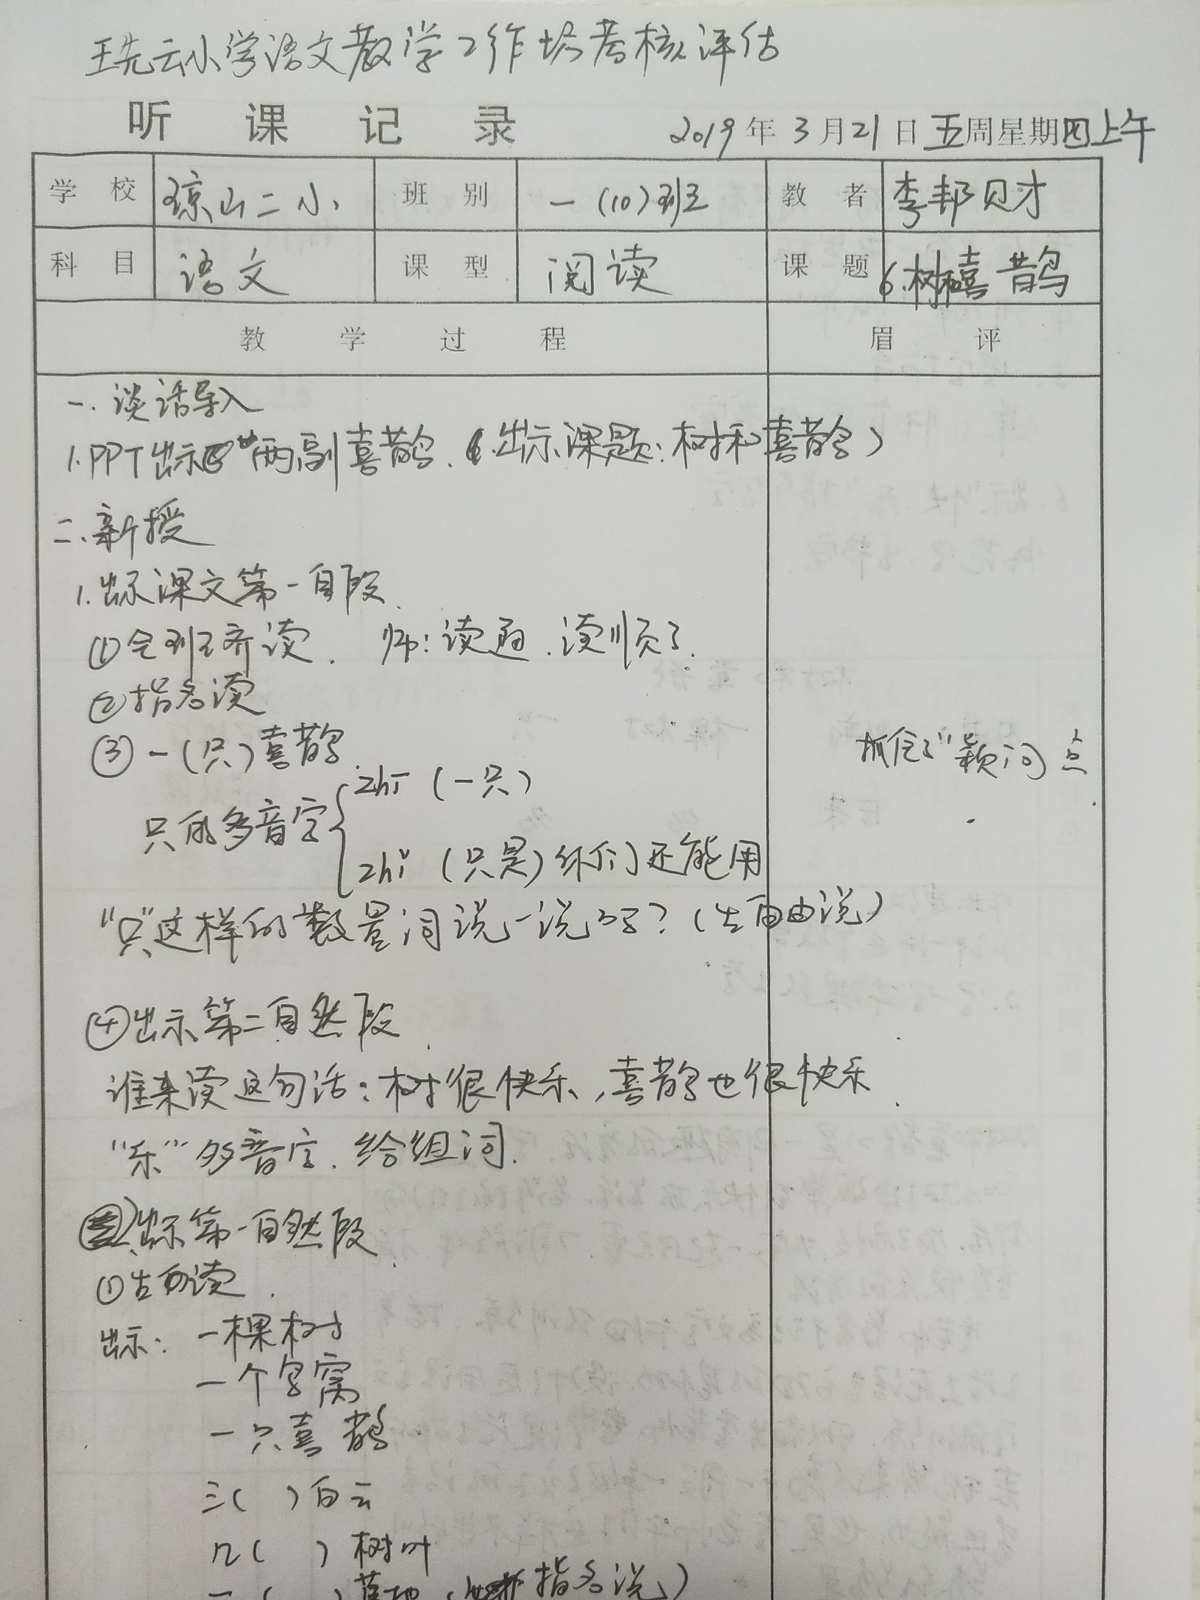 王先云小学语文教学工作坊考核评估
听课记录 2019年3月21日五周星期四上午
学校 琼山二小 班别 一(10)班 教者 李邦财
科目 语文 课型 阅读 课题 6.树和喜鹊
教学过程 眉评
一.谈话导入
1.PPT出示 两副喜鹊.(出示课题:树和喜鹊)
二.新授
1.出示课文第一自段.
①全班齐读. 师:读通.读顺了.
②指名读
③一(只)喜鹊.
抓住了"颖问点.
只的多音字 zhī (一只)
zhǐ (只是)你们还能用
"只"这样的数量词说一说吗?(生自由说)
④出示第二自然段.
谁来读这句话:树很快乐,喜鹊也很快乐.
"乐"多音字.给组词.
出示第一自然段
①生自读.
出示:一棵树
一个鸟窝
一只喜鹊
三( )白云
几( )树叶
一( )草地( 指名说)